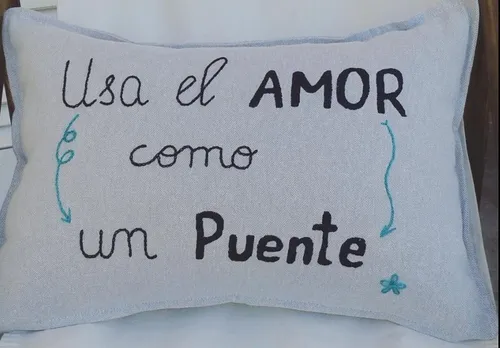 Usa el AMOR
como
un Puente